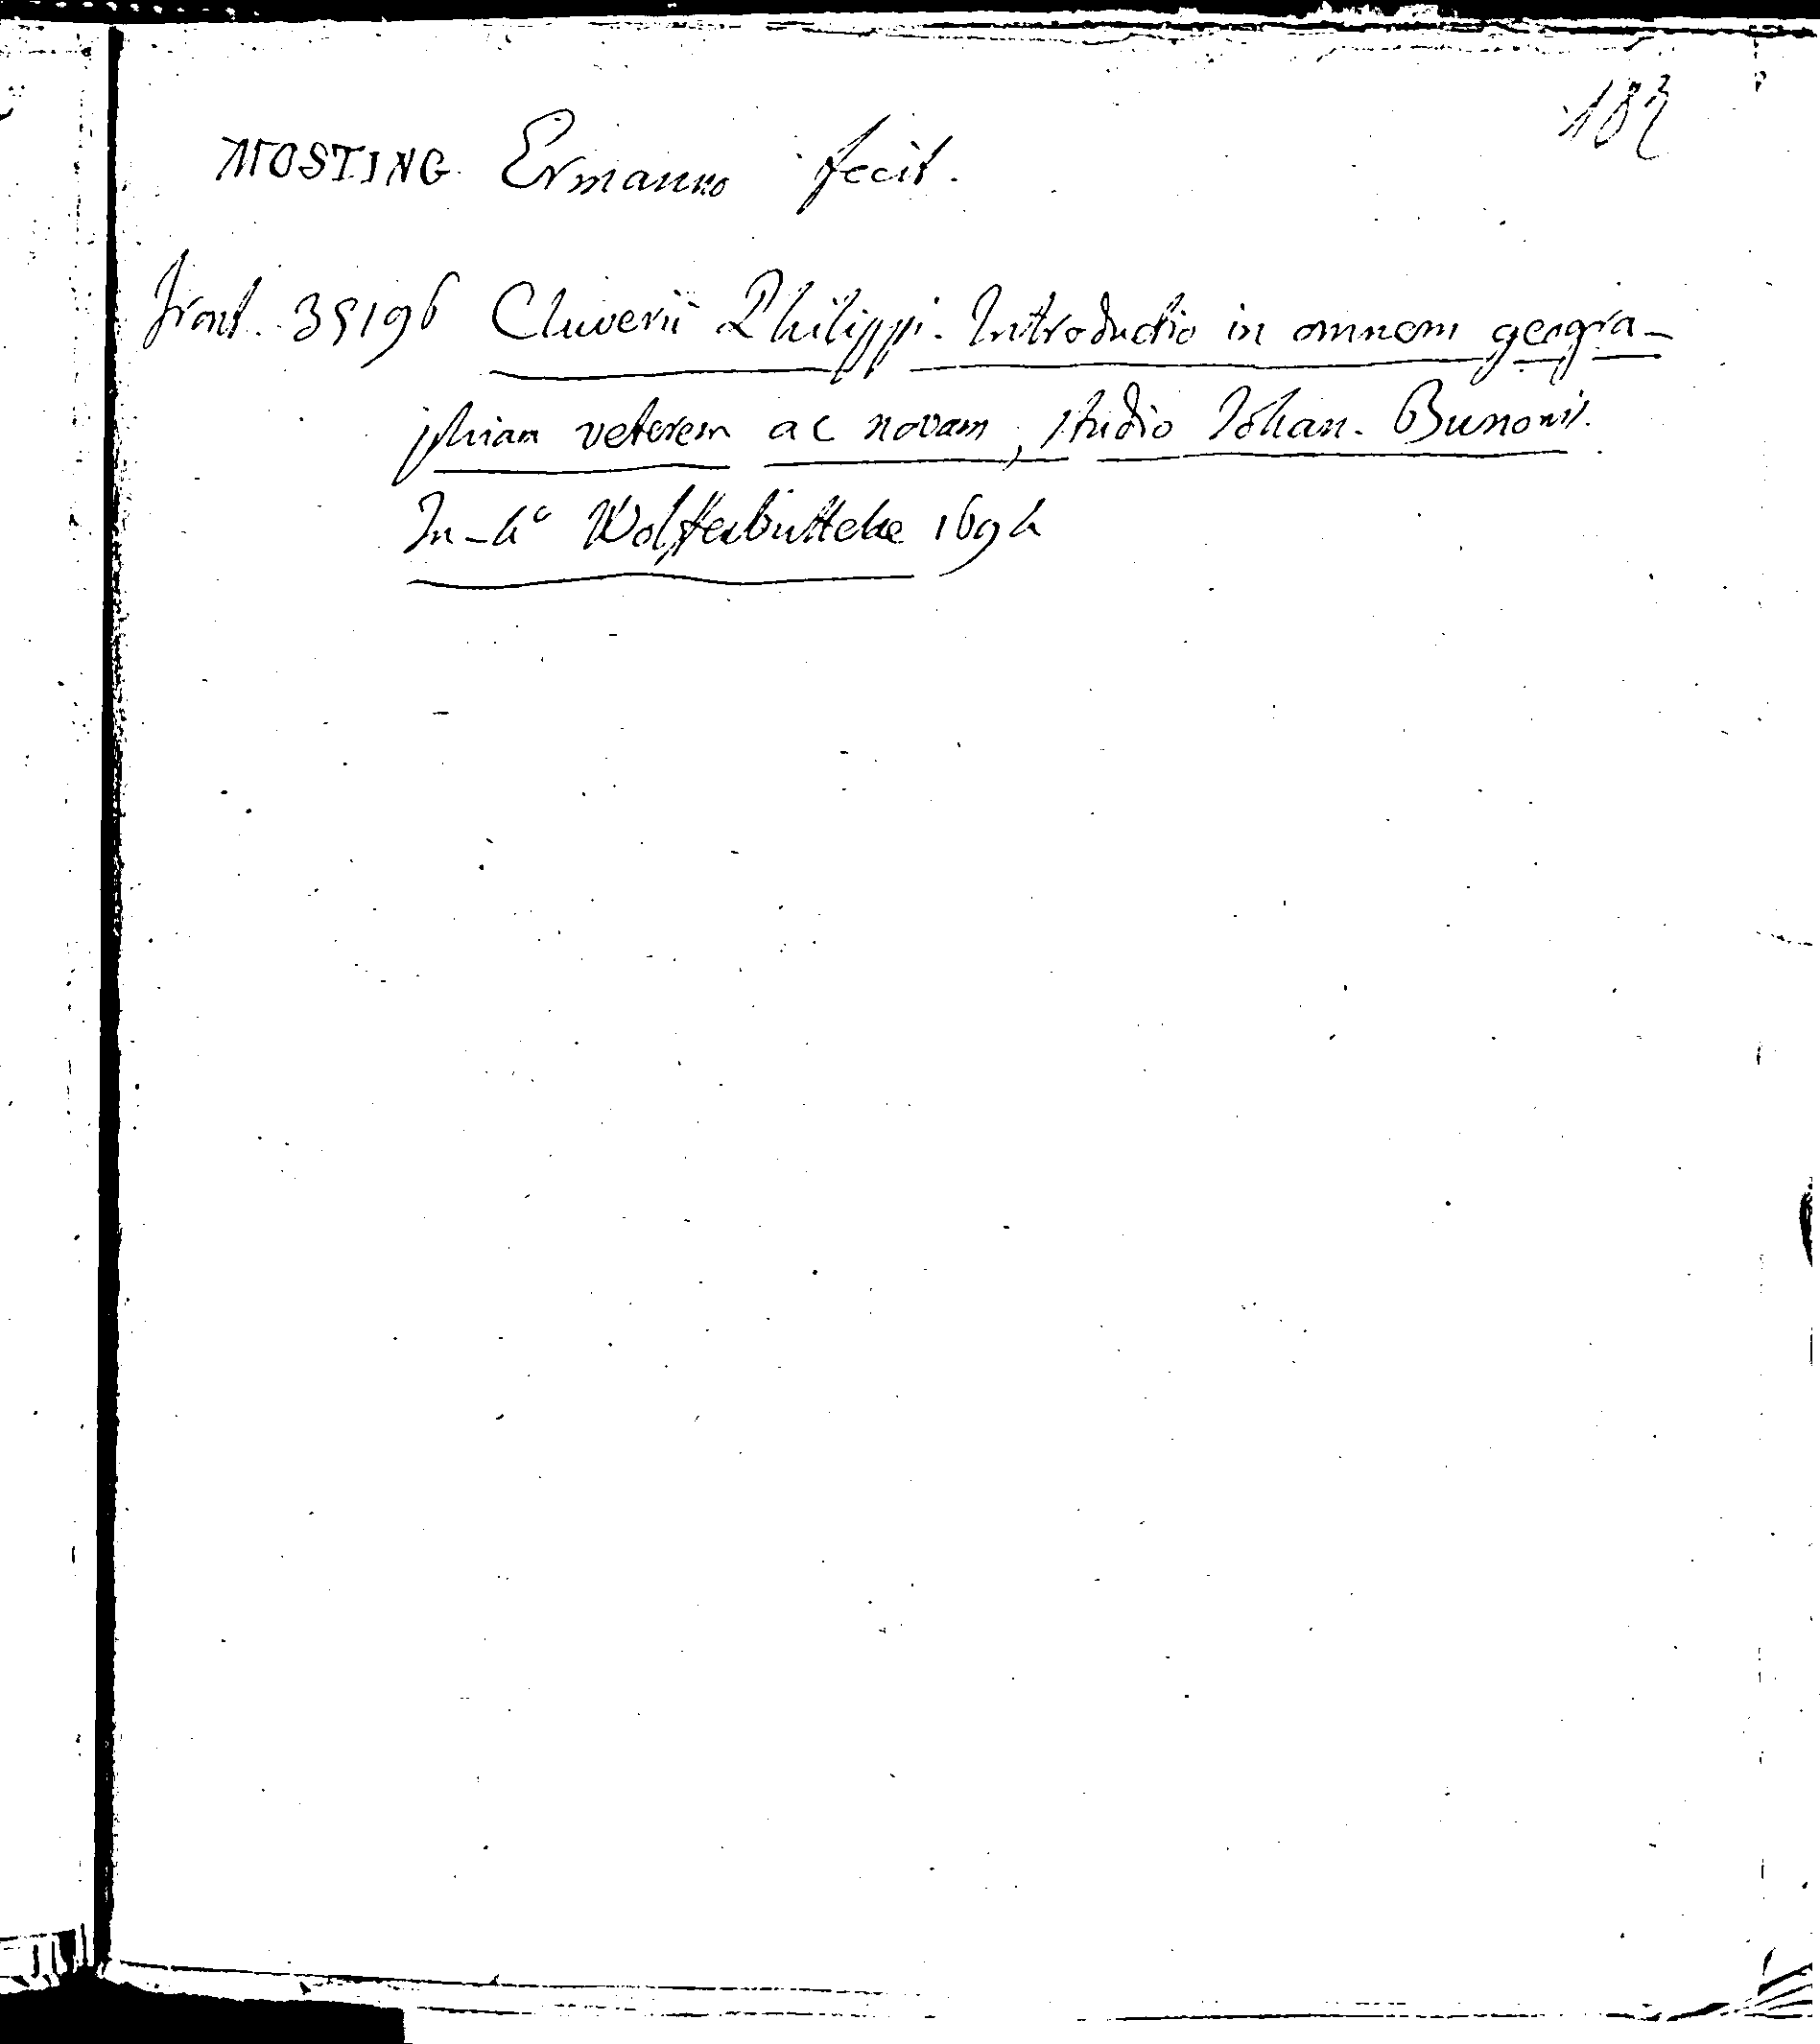 183
MOSTING Ermanno fecit.
front. 35196 Cluverii Philippi. Introductio in omnem geogra-
phiam veterem ac novam, studio Iohan. Bunonis.
In-4° Wolffenbuttelae 1694